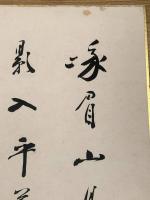 峨眉山月
影入平